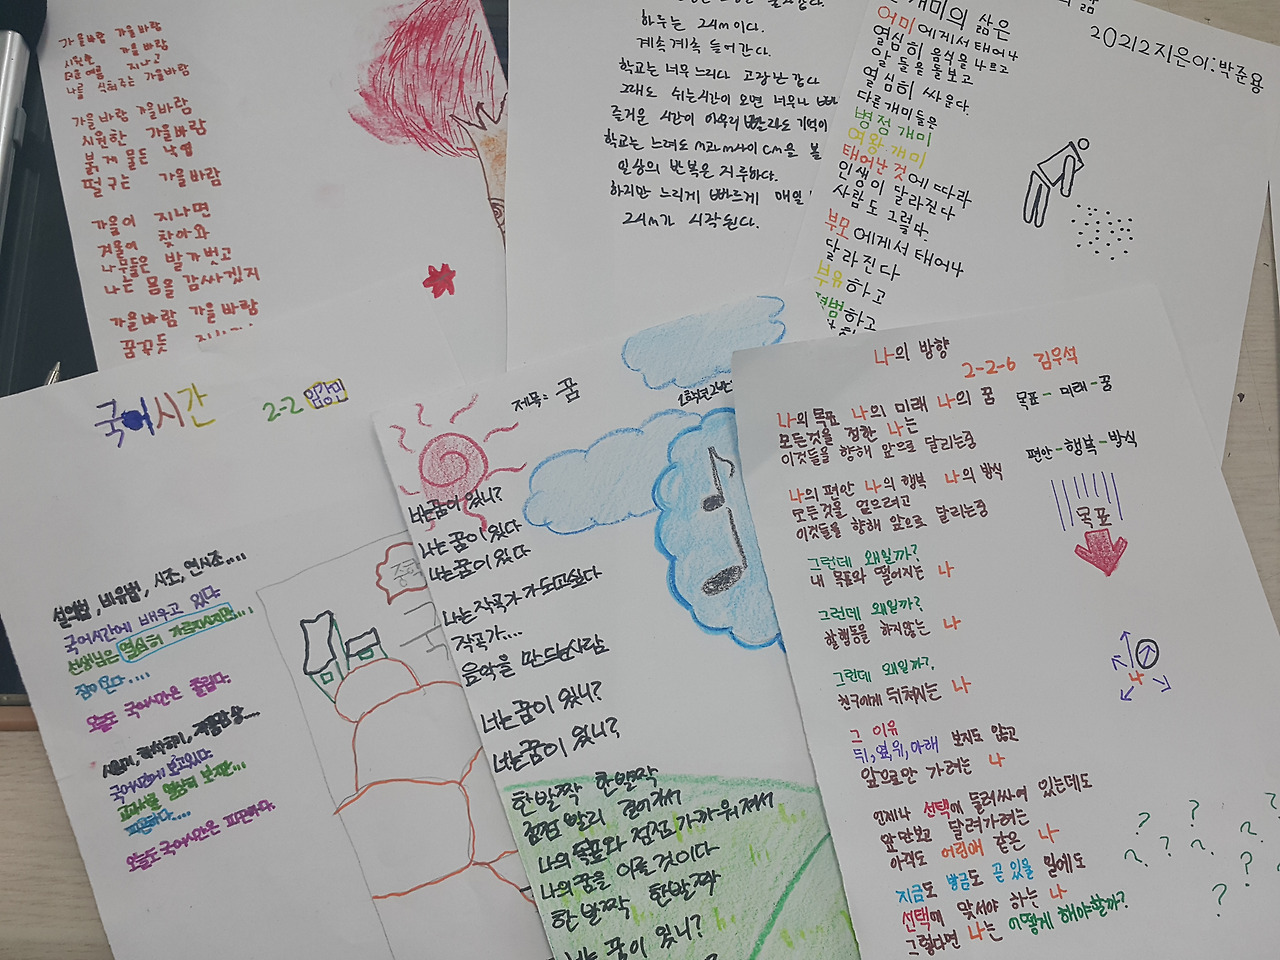 가을바람 가을바람
시원한 가을바람
더운여름 지나고
나를 식혀주는 가을바람
가을바람 가을바람
시원한 가을바람
붉게 물든 낙엽
떨구는 가을바람
가을이 지나면
겨울이 찾아와
나무들은 발가벗고
나는 몸을 감싸겠지
가을바람 가을바람
꿈꾸듯
하루는 24m이다.
계속계속 들어간다.
학교는 너무 느리다 고장난 같다
그래도 쉬는시간이 오면 너무나 빠
즐거운 시간이 아무리 빨라도 기억이
학교는 느려도 M과 M사이 CM을 볼
일상의 반복은 지루하다.
하지만 느리게 빠르게 매일
24m가 시작된다.
20212지은이:박준용
개미의 삶은
어미에게서 태어나
열심히 음식을 나르고
알 들은 돌보고
열심히 싸운다.
다른개미들은
병정개미
여왕개미
태어난 것에 따라
인생이 달라진다
사람도 그렇다.
부모에게서 태어나
달라진다
부유하고
평범하고
국어시간
2-2 임강민
설의법, 비유법, 시조, 연시조....
국어시간에 배우고 있다
선생님은 열심히 가르치시지만...
잠이온다....
오늘도 국어시간은 졸립다.
국어시간에 보고있다
교과서를 열심히 보지만...
피곤하다....
오늘도 국어시간은 피곤하다.
제목: 꿈
너는 꿈이 있니?
나는 꿈이 있다
나는 꿈이 있다
나는 작곡가가 되고싶다
작곡가....
음악을 만드는사람
너는 꿈이 있니?
너는 꿈이 있니?
한발짝 한발짝
점점 빨리 걸어가서
나의 목표와 점점 가까워져서
나의 꿈을 이룰 것이다
한발짝 한발짝
너는 꿈이 있니?
나의 방향
2-2-6 김우석
나의 목표 나의 미래 나의 꿈
모든것을 정한 나는
이것들을 향해 앞으로 달리는중
나의 편안 나의 행복 나의 방식
모든것을 얻으려고
이것들을 향해 앞으로 달리는중
그런데 왜일까?
내 목표와 떨어지는 나
그런데 왜일까?
할행동을 하지않는 나
그런데 왜일까?
친구에게 뒤쳐지는 나
그 이유
뒤,옆,위,아래 보지도 않고
앞으로만 가려는 나
언제나 선택에 둘러싸여 있는데도
앞만보고 달려가려는
아직도 어린애 같은 나
지금도 방금도 곧 있을 일에도
선택에 맞서야 하는 나
그렇다면 나는 어떻게 해야할까?
목표-미래-꿈
편안-행복-방식
목표
나